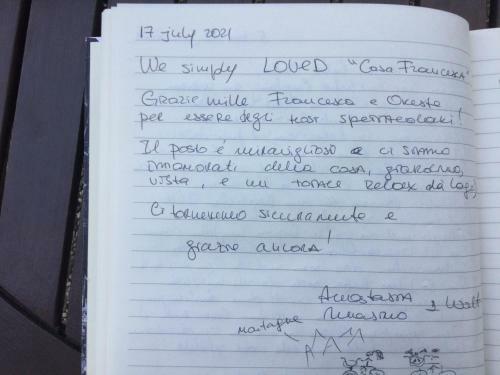 17 july 2021
We simply LOVED "Casa Francesca"
Grazie mille Francesca e Oreste,
per essere degli host spettacolari!
Il posto è meraviglioso e ci siamo
innamorati della casa, giardino,
vista, e un totale relax da
Ci torneremo sicuramente e
grazie ancora!
Anastasia
Wolf
montagne